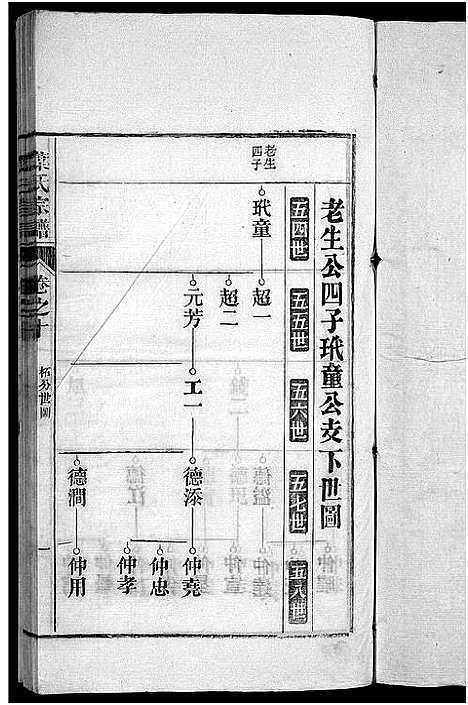 老生公四子玳童公支下世圖
五四世
五五世
五六世
五七世
五八世
老生四子
玳童
超一
超二
元芳
工一
德添
德澗
仲堯
仲忠
仲孝
仲用
氏宗譜
卷之十
世圖
一